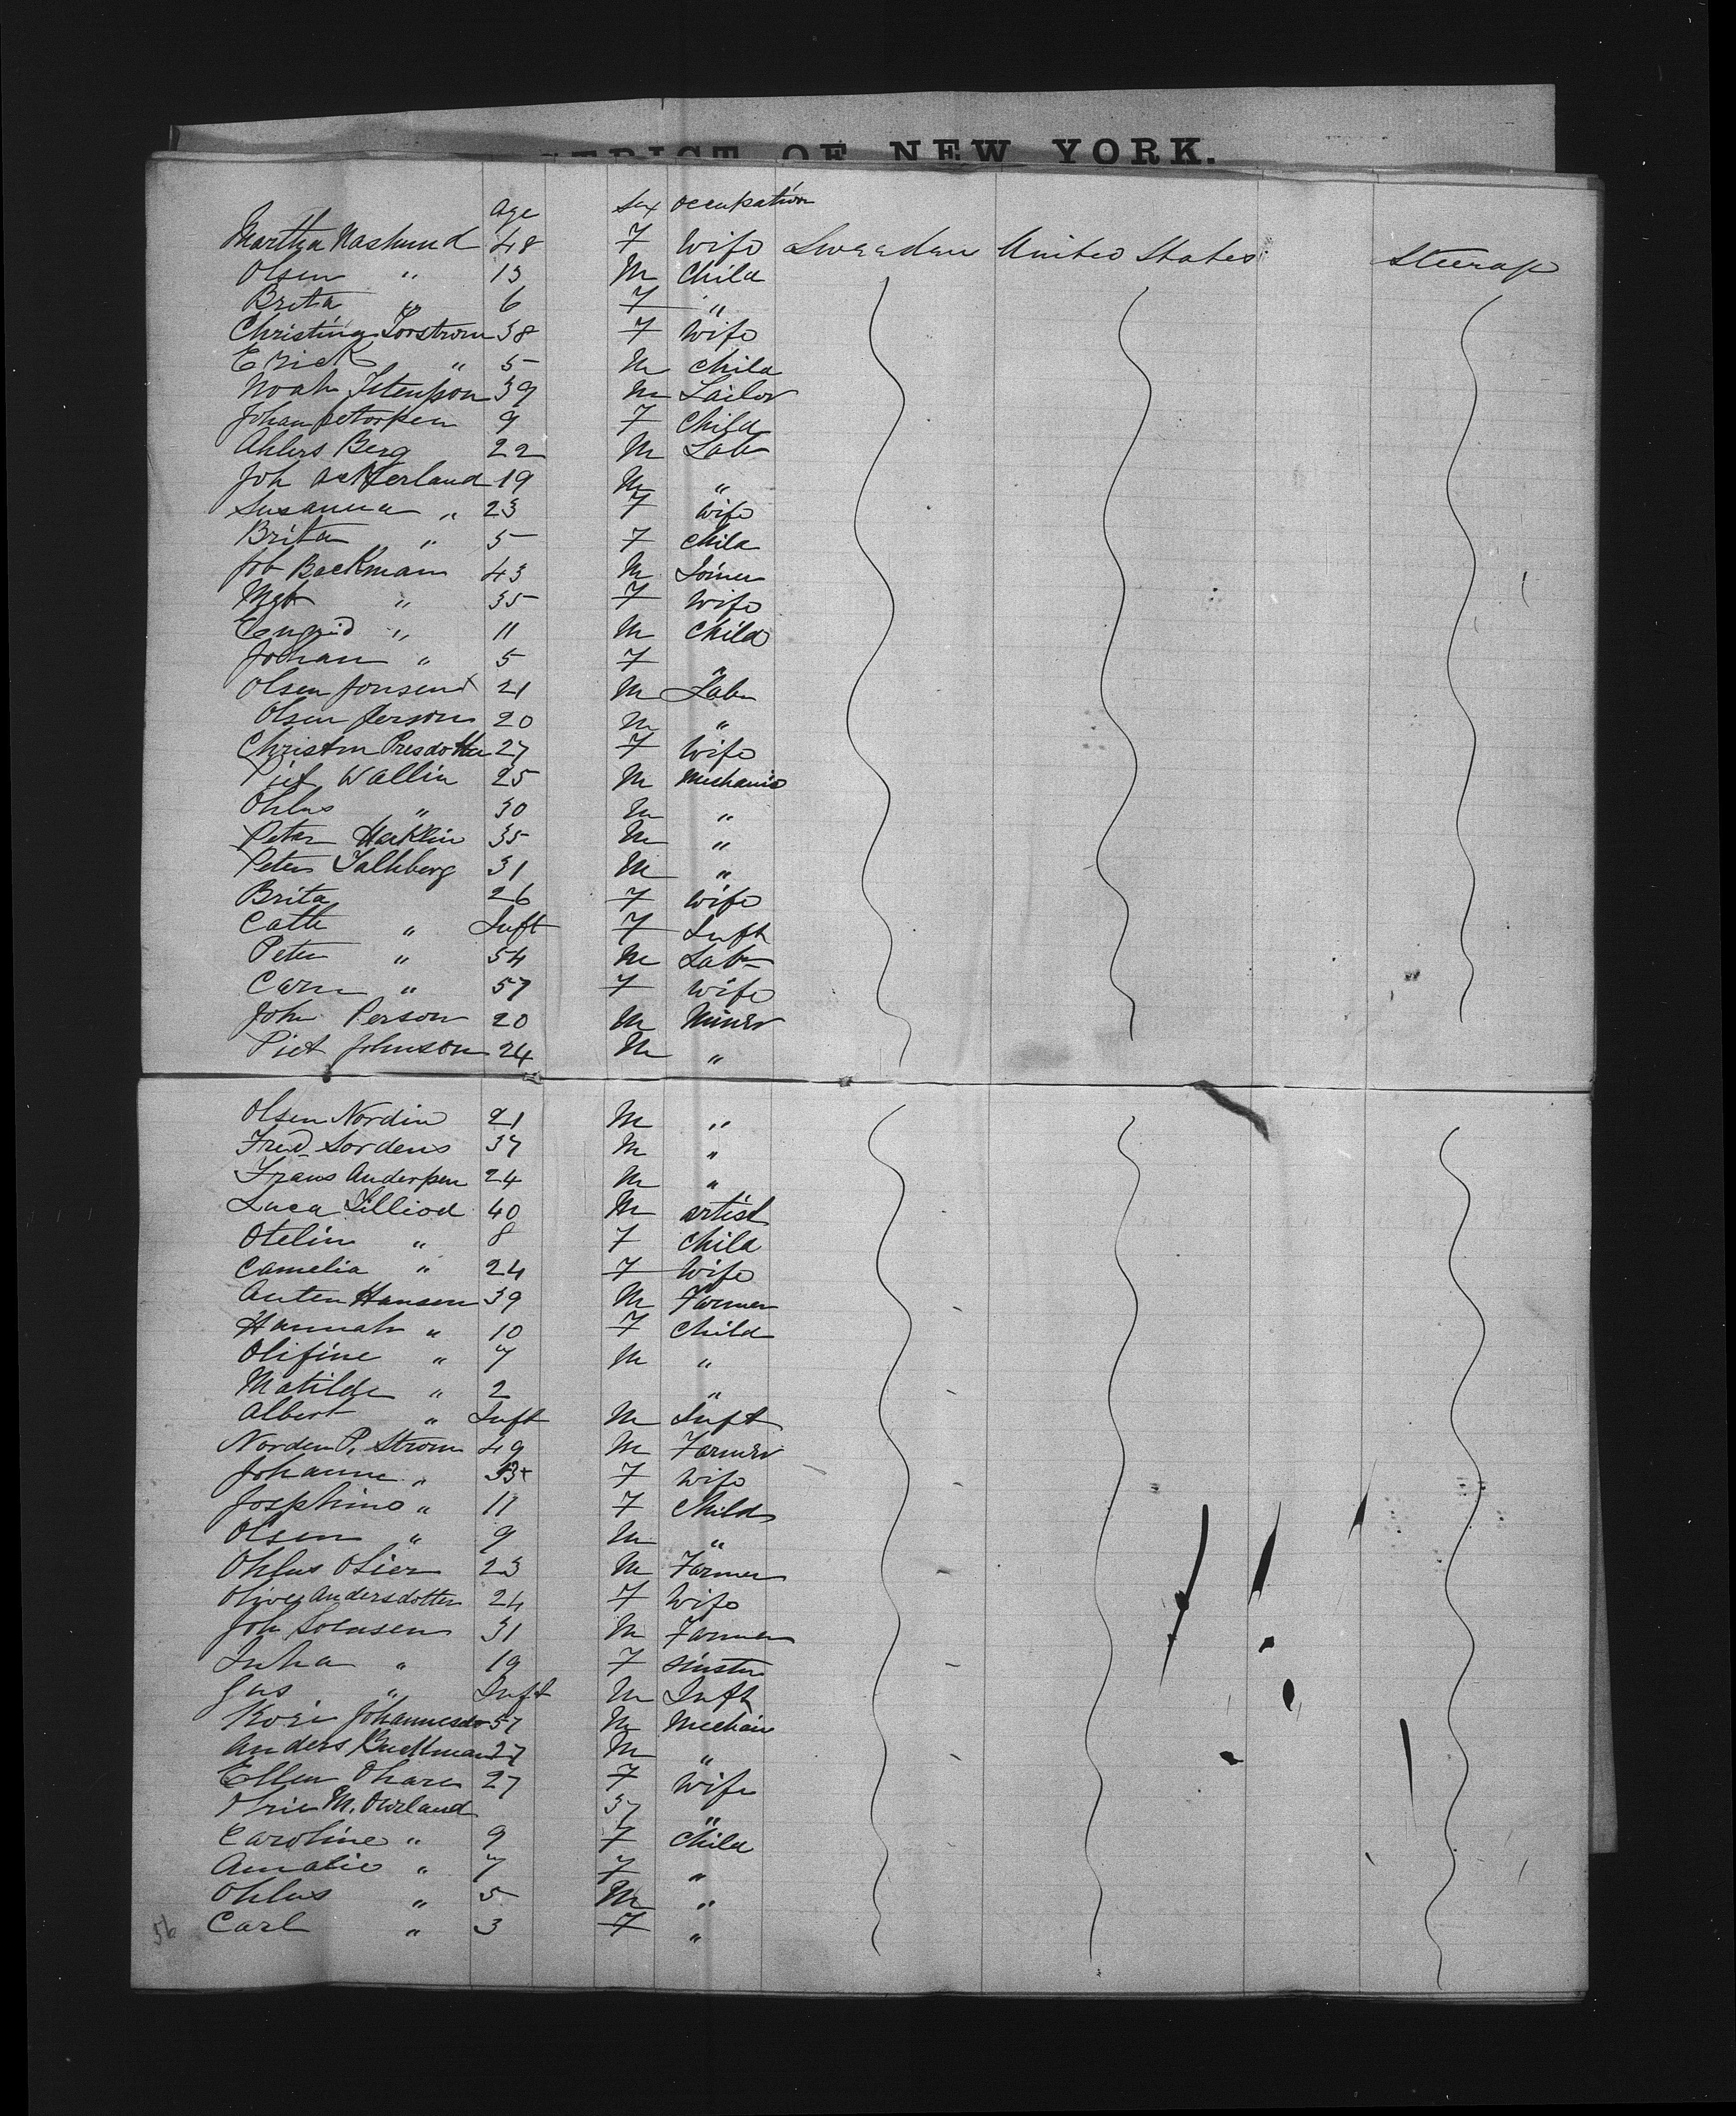 DISTRICT OF NEW YORK.
Age Sex Occupation
Martha Naslund 48 F Wife Sweaden United States Steerage
Olsen " 13 M Child
Brita " 6 F "
Christina Torstrom 38 F Wife
Erick " 5 M Child
Noah 39 M Sailor
Johan 9 F Child
Ahlers Berg 22 M Lab
Joh Ackerland 19 M "
Susanna " 23 F Wife
Brita " 5 F Child
Job Backman 43 M Joiner
Mgt " 35 F Wife
Engrid " 11 M Child
Johan " 5 F "
Olsen Jonsen 21 M Lab
Olsen Person 20 M "
Christin Presdotter 27 F Wife
Piet Wallin 25 M Mechanic
Ohlus " 30 M "
Peter Hacklin 35 M "
Peter Talhberg 31 M "
Brita 26 F Wife
Cath " Inft F Inft
Peter " 54 M Lab
Carn " 57 F Wife
John Person 20 M Miner
Piet Johnson 24 M "
Olsen Nordin 21 M "
Fred Sordens 37 M "
Frans Anderssen 24 M "
Luca Tilliod 40 M Artist
Otelin " 8 F Child
Camelia " 24 F Wife
Anten Hansen 39 M Farmer
Hannah " 10 F Child
Olifine " 7 M "
Matilde " 2 "
Albert " Inft M Inft
Norden P. Strom 49 M Farmer
Johanne " F Wife
Josphine " 11 F Child
Olsen " 9 M "
Ohlus Olier 23 M Farmer
Olive Andersdotter 24 F Wife
Joh Sorensen 31 M Farmer
Inha " 19 F
Gus " Inft M Inft
Kori Johannesdo 57 M Mechan
Anders Buckman 27 M "
Ellen Ohare 27 F Wife
M. Overland 37 "
Caroline " 9 F Child
Amalie " 7 F "
Ohlus " 5 M "
56 Carl " 3 F "